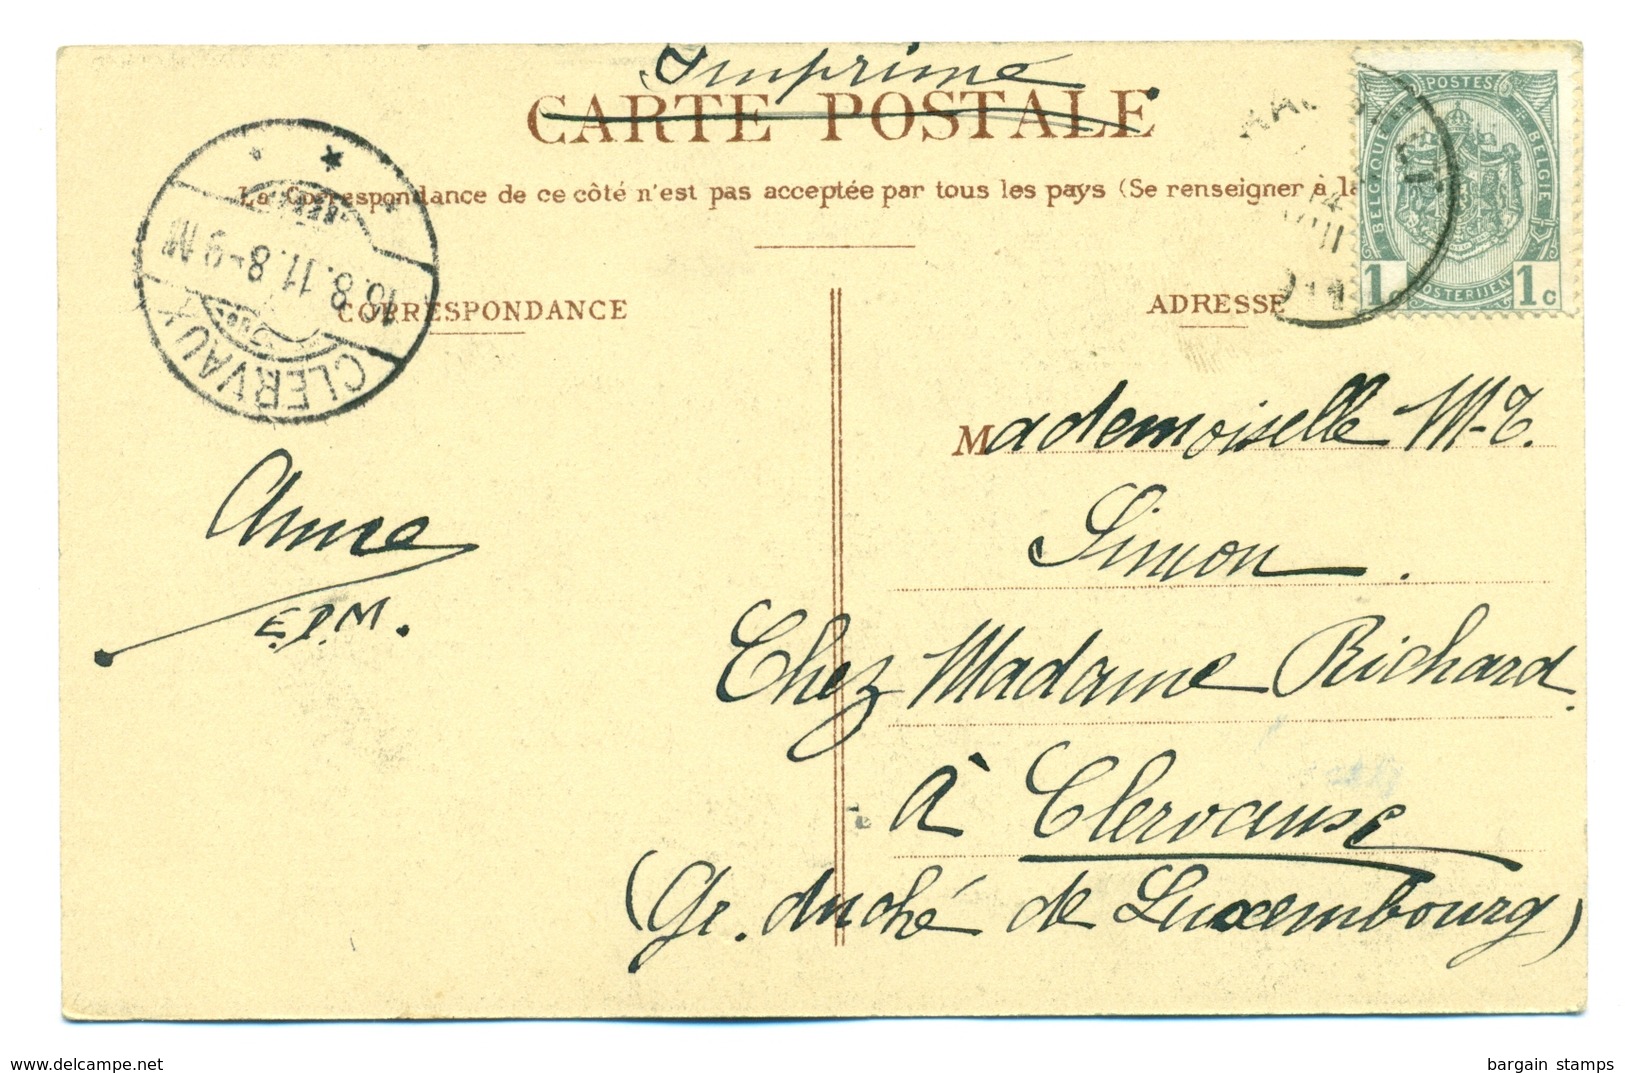 Imprimé
CARTE POSTALE
La Correspondance de ce côté n'est pas acceptée par tous les pays (Se renseigner à la
CORRESPONDANCE
ADRESSE
POSTES
BELGIQUE
BELGIË
POSTERIJEN
1c 1c
14
VIII
CLERVAUX
16.8.11.8-9M
Mademoiselle M-T.
Simon.
Chez Madame Richard.
à Clervaux
(Gr. duché de Luxembourg)
Anna
E.P.M.
www.delcampe.net
bargain stamps